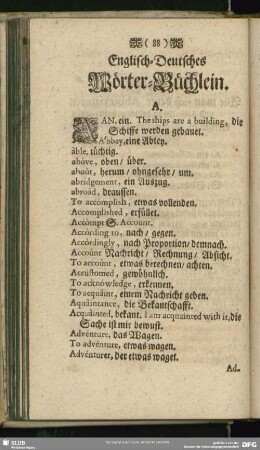 ( 88 )
Englisch-Deutsches
Wörter-Büchlein.
A.
AN. ein. The ships are a building, die
Schiffe werden gebauet.
A'bbay, eine Abtey.
âble, tüchtig.
abòve, oben / über.
aboût, herum / ohngefehr / um.
abridgement, ein Auszug.
abroàd, draussen.
To accòmplish, etwas vollenden.
Accomplished, erfüllet.
Accòmpt S. Account.
Accòrding to, nach / gegen.
Accòrdingly, nach Proportion / demnach.
Accoùnt Nachricht / Rechnung / Absicht.
To accoùnt, etwas berechnen / achten.
Accùstomed, gewöhnlich.
To acknòwledge, erkennen.
To acquàint, einem Nachricht geben.
Aquàintance, die Bekantschafft.
Acquàinted, bekant. I am acquainted with it, die
Sache ist mir bewust.
Advènture, das Wagen.
To advènture, etwas wagen.
Advènturer, der etwas waget.
Ad-
SLUB
DFG